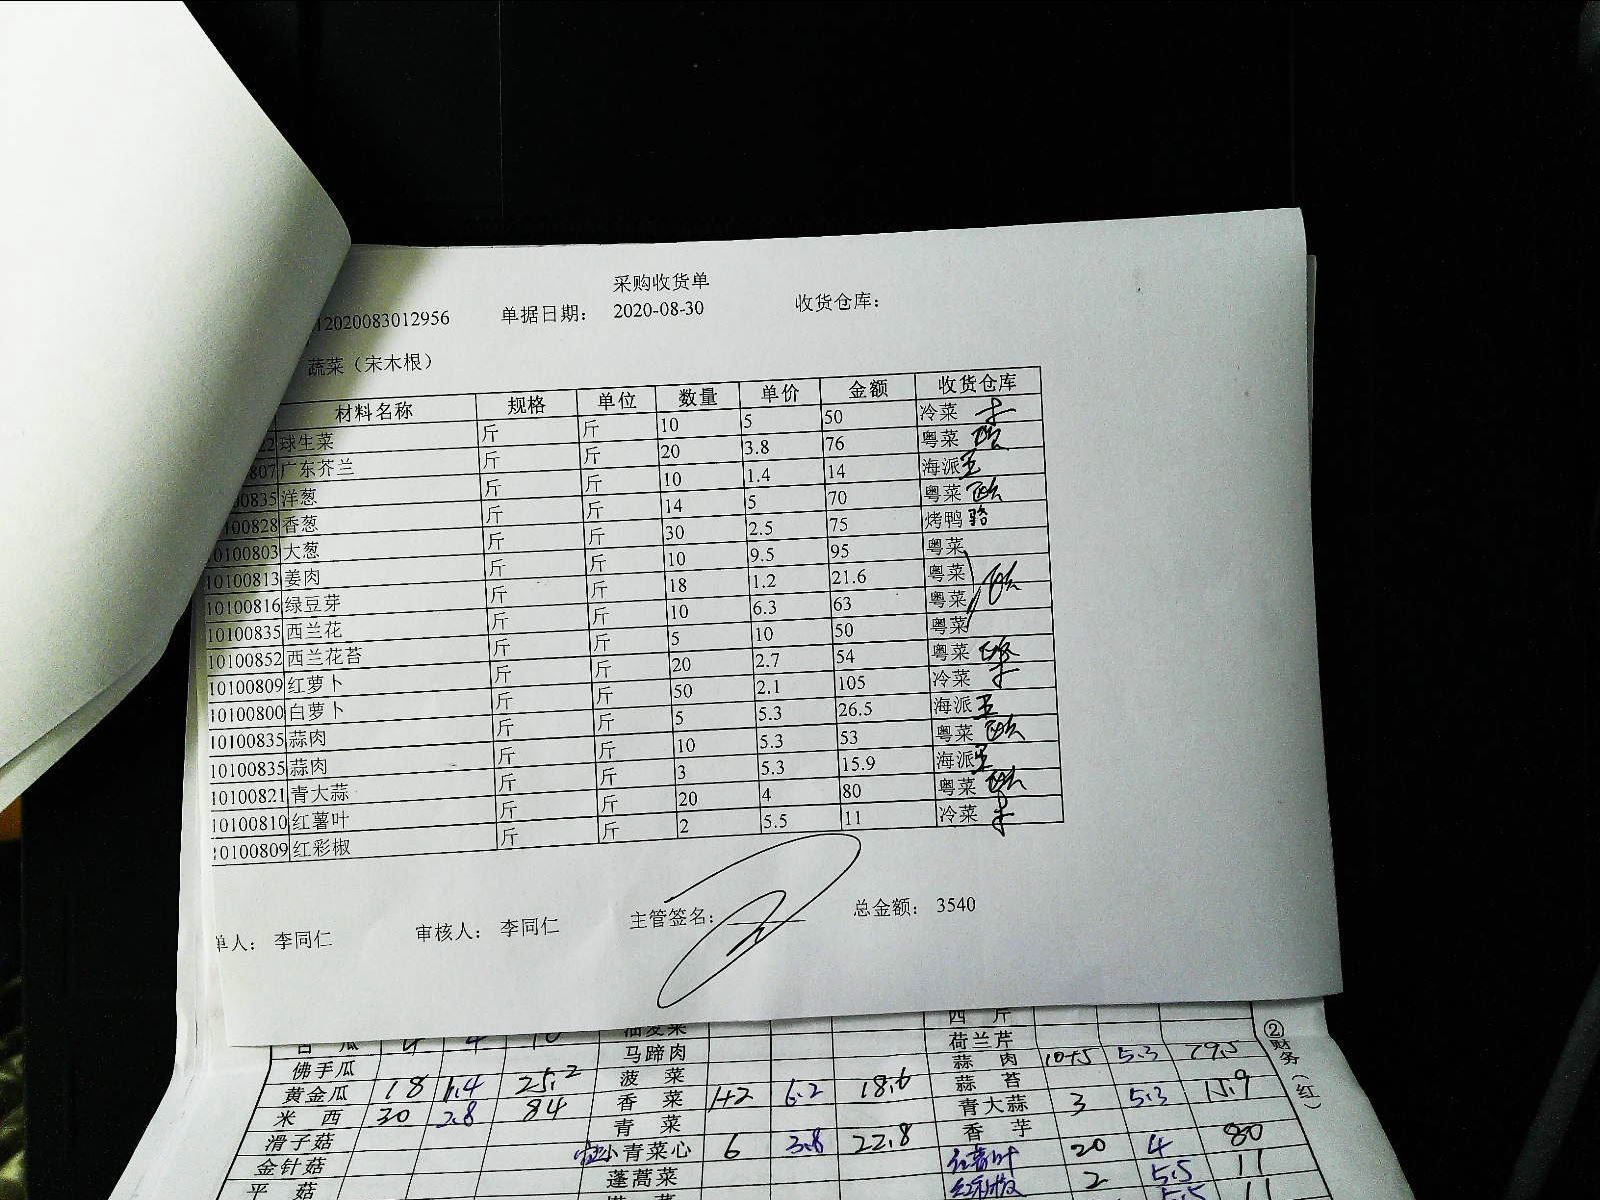 采购收货单
12020083012956 单据日期： 2020-08-30 收货仓库：
蔬菜（宋木根）
材料名称 规格 单位 数量 单价 金额 收货仓库
22 球生菜 斤 斤 10 5 50 冷菜
807 广东芥兰 斤 斤 20 3.8 76 粤菜
00835 洋葱 斤 斤 10 1.4 14 海派 王
100828 香葱 斤 斤 14 5 70 粤菜
10100803 大葱 斤 斤 30 2.5 75 烤鸭 骆
10100813 姜肉 斤 斤 10 9.5 95 粤菜
10100816 绿豆芽 斤 斤 18 1.2 21.6 粤菜
10100835 西兰花 斤 斤 10 6.3 63 粤菜
10100852 西兰花苔 斤 斤 5 10 50 粤菜
10100809 红萝卜 斤 斤 20 2.7 54 粤菜
10100800 白萝卜 斤 斤 50 2.1 105 冷菜
10100835 蒜肉 斤 斤 5 5.3 26.5 海派 王
10100835 蒜肉 斤 斤 10 5.3 53 粤菜
10100821 青大蒜 斤 斤 3 5.3 15.9 海派 王
10100810 红薯叶 斤 斤 20 4 80 粤菜
10100809 红彩椒 斤 斤 2 5.5 11 冷菜
单人： 李同仁 审核人： 李同仁 主管签名： 总金额： 3540
油麦菜 西 斤
马蹄肉 荷兰芹
佛手瓜 菠 菜 蒜 肉 10+5 5.3 79.5
黄金瓜 18 1.4 25.2 香 菜 1+2 6.2 18.6 蒜 苔
米 西 30 2.8 84 青 菜 青大蒜 3 5.3 15.9
滑子菇 小青菜心 6 3.8 22.8 香 芋
金针菇 蓬蒿菜 红薯叶 20 4 80
平 菇 红彩椒 2 5.5 11
②财务（红）